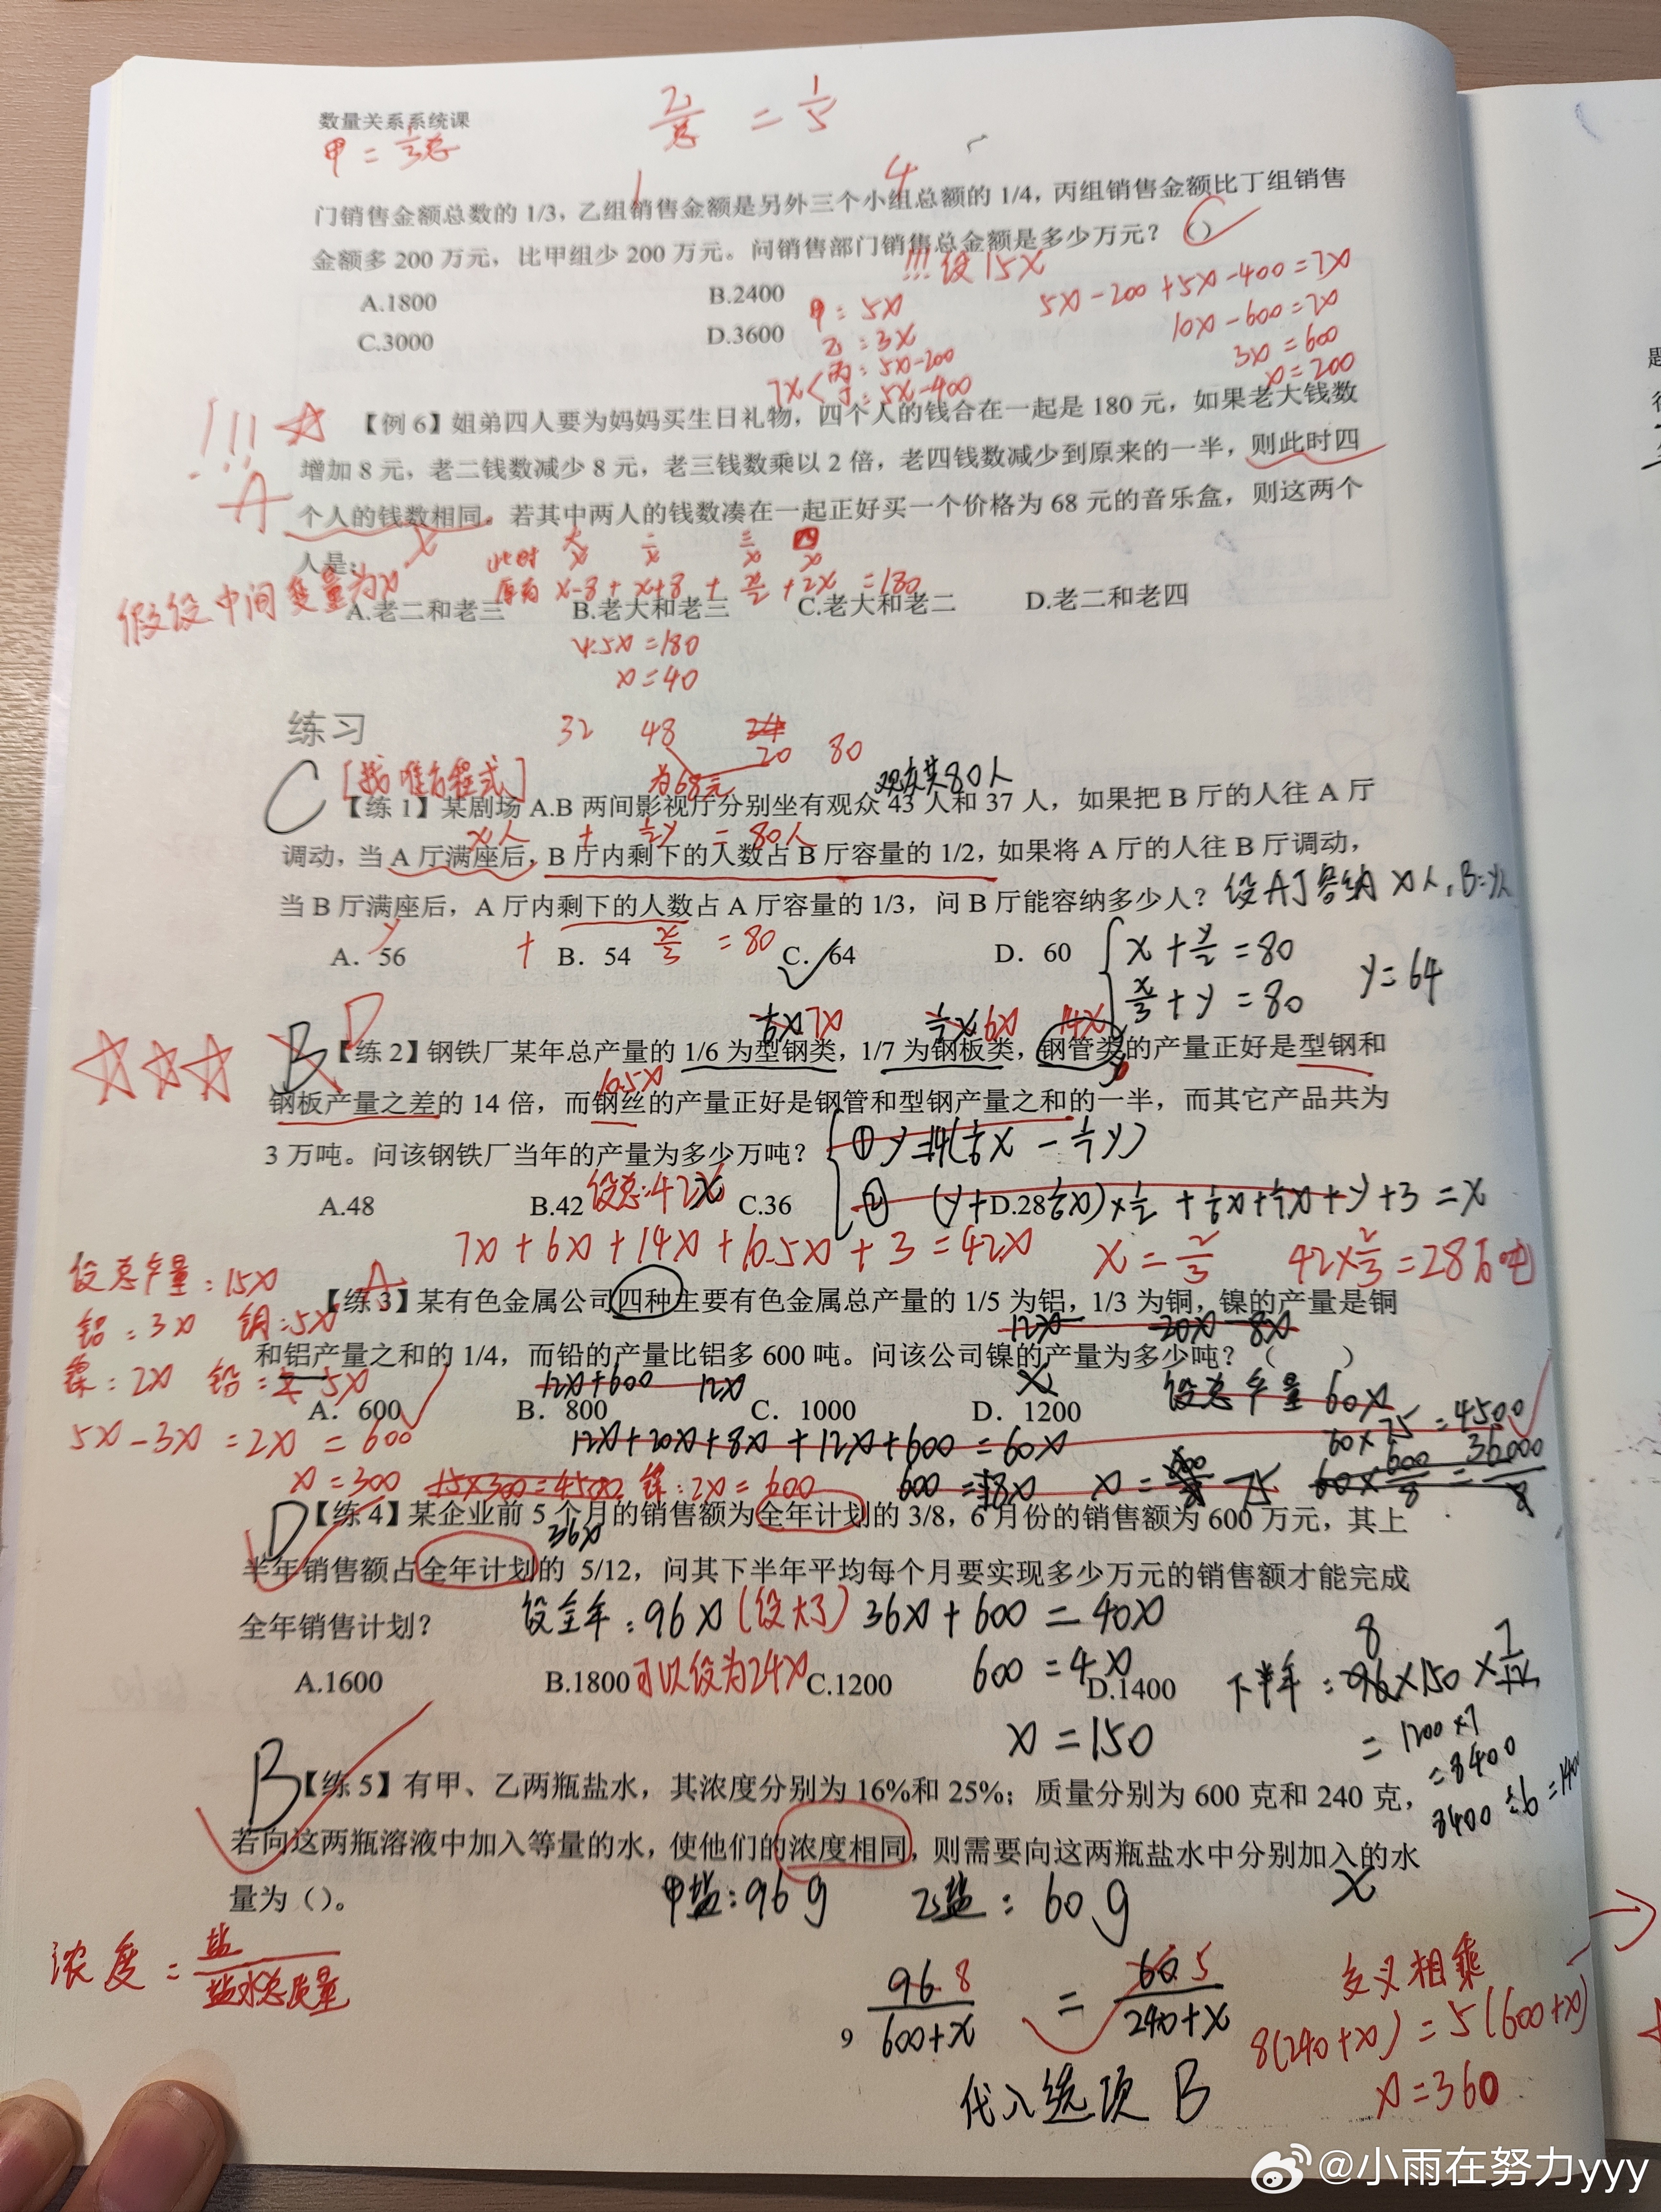 数量关系系统课
乙/总 = 1/5
甲 = 1/3总
1 4
门销售金额总数的 1/3，乙组销售金额是另外三个小组总额的 1/4，丙组销售金额比丁组销售
金额多 200 万元，比甲组少 200 万元。问销售部门销售总金额是多少万元？（）
!!! 设 15x
A.1800 B.2400
C.3000 D.3600
甲：5x
乙：3x
7x < 丙：5x-200
丁：5x-400
5x-200+5x-400=7x
10x-600=7x
3x=600
x=200
!!! A
【例 6】姐弟四人要为妈妈买生日礼物，四个人的钱合在一起是 180 元，如果老大钱数
增加 8 元，老二钱数减少 8 元，老三钱数乘以 2 倍，老四钱数减少到原来的一半，则此时四
个人的钱数相同。若其中两人的钱数凑在一起正好买一个价格为 68 元的音乐盒，则这两个
人是：
x
此时 大 x 二 x 三 x 四 x
假设中间变量为x
原有 x-8 + x+8 + x/2 + 2x = 180
A.老二和老三 B.老大和老三 C.老大和老二 D.老二和老四
4.5x=180
x=40
练习
32 48 20 80
为68元
C [找准方程式]
观众共80人
【练 1】某剧场 A.B 两间影视厅分别坐有观众 43 人和 37 人，如果把 B 厅的人往 A 厅
x人 + 1/2y = 80人
调动，当 A 厅满座后，B 厅内剩下的人数占 B 厅容量的 1/2，如果将 A 厅的人往 B 厅调动，
当 B 厅满座后，A 厅内剩下的人数占 A 厅容量的 1/3，问 B 厅能容纳多少人？
设A厅容纳x人，B=y人
y + x/3 = 80
A．56 B．54 C．64 D．60
x+y/2=80
x/3+y=80
y=64
B D
1/6x 7x 1/7x 6x 14x
【练 2】钢铁厂某年总产量的 1/6 为型钢类，1/7 为钢板类，钢管类的产量正好是型钢和
10.5x
钢板产量之差的 14 倍，而钢丝的产量正好是钢管和型钢产量之和的一半，而其它产品共为
3 万吨。问该钢铁厂当年的产量为多少万吨？
① y=14(1/6x - 1/7y)
A.48 B.42 C.36 D.28
设总：42x
② (y+1/6x)×1/2 + 1/6x+1/7x+y+3=x
7x+6x+14x+10.5x+3=42x x=2/3 42×2/3=28万吨
设总产量：15x
铝：3x 铜：5x
镍：2x 铅：5x
5x-3x=2x=600
x=300 15×300=4500 镍：2x=600
A
【练 3】某有色金属公司四种主要有色金属总产量的 1/5 为铝，1/3 为铜，镍的产量是铜
12x 20x 8x
和铝产量之和的 1/4，而铅的产量比铝多 600 吨。问该公司镍的产量为多少吨？（ ）
12x+600 12x x
设总产量 60x
A．600 B．800 C．1000 D．1200
12x+20x+8x+12x+600=60x
60×75=4500
600=8x x=600/8 75 60×600/8=36000/8
D
【练 4】某企业前 5 个月的销售额为全年计划的 3/8，6 月份的销售额为 600 万元，其上
36x
半年销售额占全年计划的 5/12，问其下半年平均每个月要实现多少万元的销售额才能完成
全年销售计划？
设全年：96x（设大了） 36x+600=40x
A.1600 B.1800 C.1200 D.1400
可以设为24x
600=4x
x=150
下半年：96×150×7/12
8
=1200×7
=8400
8400÷6=1400
B
【练 5】有甲、乙两瓶盐水，其浓度分别为 16%和 25%；质量分别为 600 克和 240 克，
若向这两瓶溶液中加入等量的水，使他们的浓度相同，则需要向这两瓶盐水中分别加入的水
量为（）。
甲盐：96g 乙盐：60g x
浓度=盐/盐水总质量
96 8/600+x = 60 5/240+x
交叉相乘
8(240+x)=5(600+x)
x=360
9
代入选项 B
@小雨在努力yyy